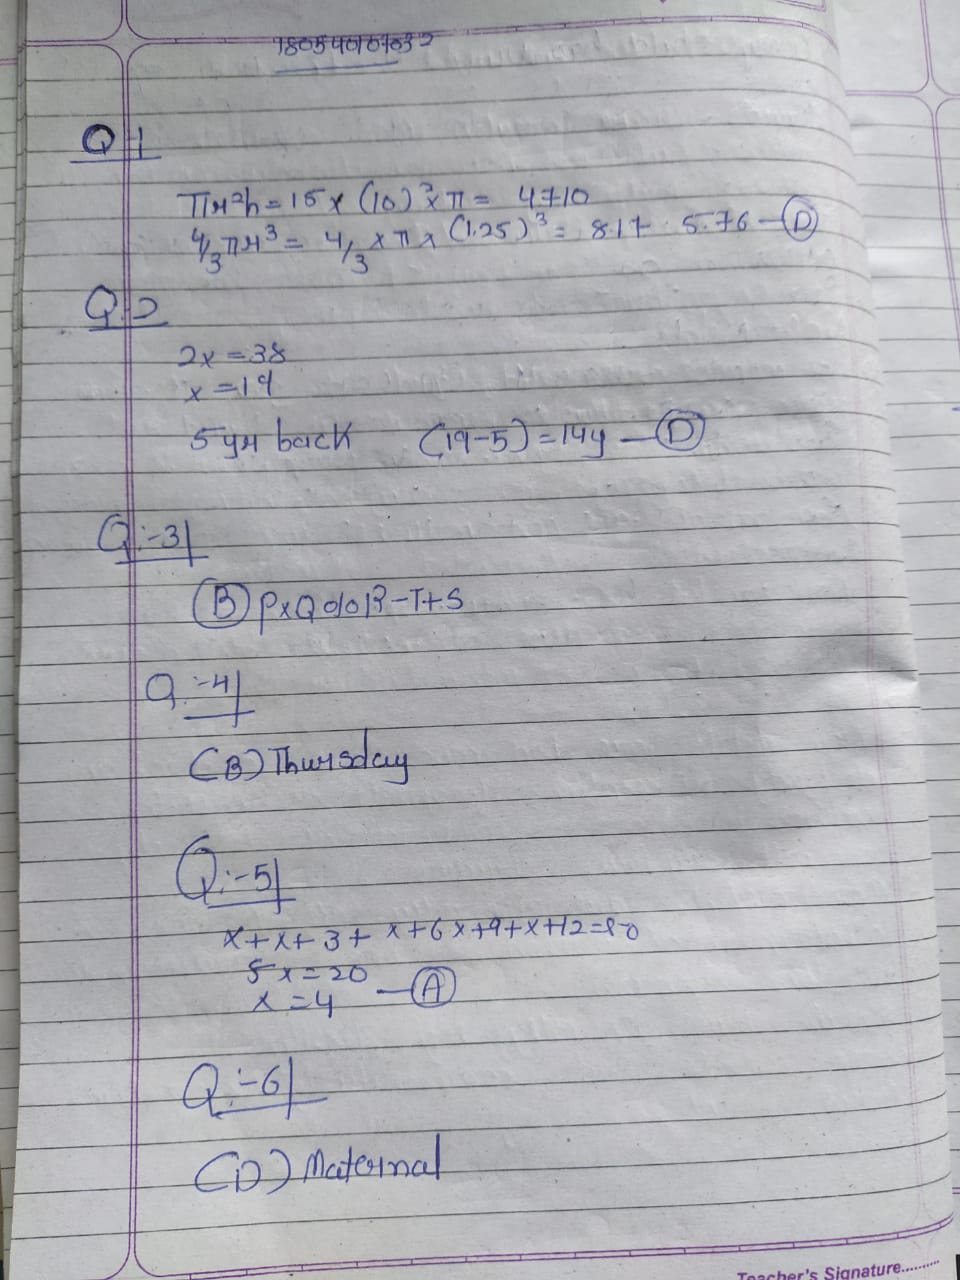 180540107032
Q 1
πr²h = 15 x (10)² x π = 4710
4/3 πr³ = 4/3 x π x (1.25)³ = 8.17 5.76 — D
Q.2
2x = 38
x = 19
5 yr back (19-5) = 14y — D
Q:-3
(B) PxQ%R-T+S
Q:-4
(B) Thursday
Q:-5
x+x+3+x+6x+9+x+12=50
5x = 20
x = 4 — A
Q:-6
(D) Maternal
Teacher's Signature..........